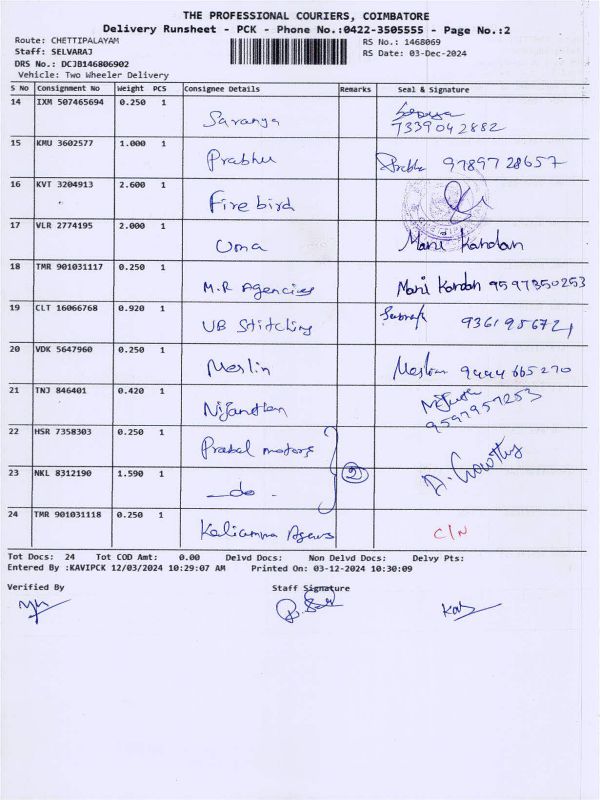 THE PROFESSIONAL COURIERS, COIMBATORE
Delivery Runsheet - PCK - Phone No.:0422-3505555 - Page No.:2
Route: CHETTIPALAYAM RS No.: 1468069
Staff: SELVARAJ RS Date: 03-Dec-2024
DRS No.: DCJB146806902
Vehicle: Two Wheeler Delivery
S No Consignment No Weight PCS Consignee Details Remarks Seal & Signature
14 IXM 507465694 0.250 1 Saranya
7339042882
15 KMU 3602577 1.000 1 Prabhu Prabhu 9789728657
16 KVT 3204913 2.600 1 Fire bird
17 VLR 2774195 2.000 1 Uma Mani Kandan
18 TMR 901031117 0.250 1 M.R Agencies Mani Kandan 9597350253
19 CLT 16066768 0.920 1 UB Stitching 9361956721
20 VDK 5647960 0.250 1 Merlin Merlin 9444665270
21 TNJ 846401 0.420 1 Nijanthan
9597957253
22 HSR 7358303 0.250 1 Prabal motors
23 NKL 8312190 1.590 1 -do- 2
24 TMR 901031118 0.250 1 Kaliamma Agencies C/N
Tot Docs: 24 Tot COD Amt: 0.00 Delvd Docs: Non Delvd Docs: Delvy Pts:
Entered By :KAVIPCK 12/03/2024 10:29:07 AM Printed On: 03-12-2024 10:30:09
Verified By Staff Signature